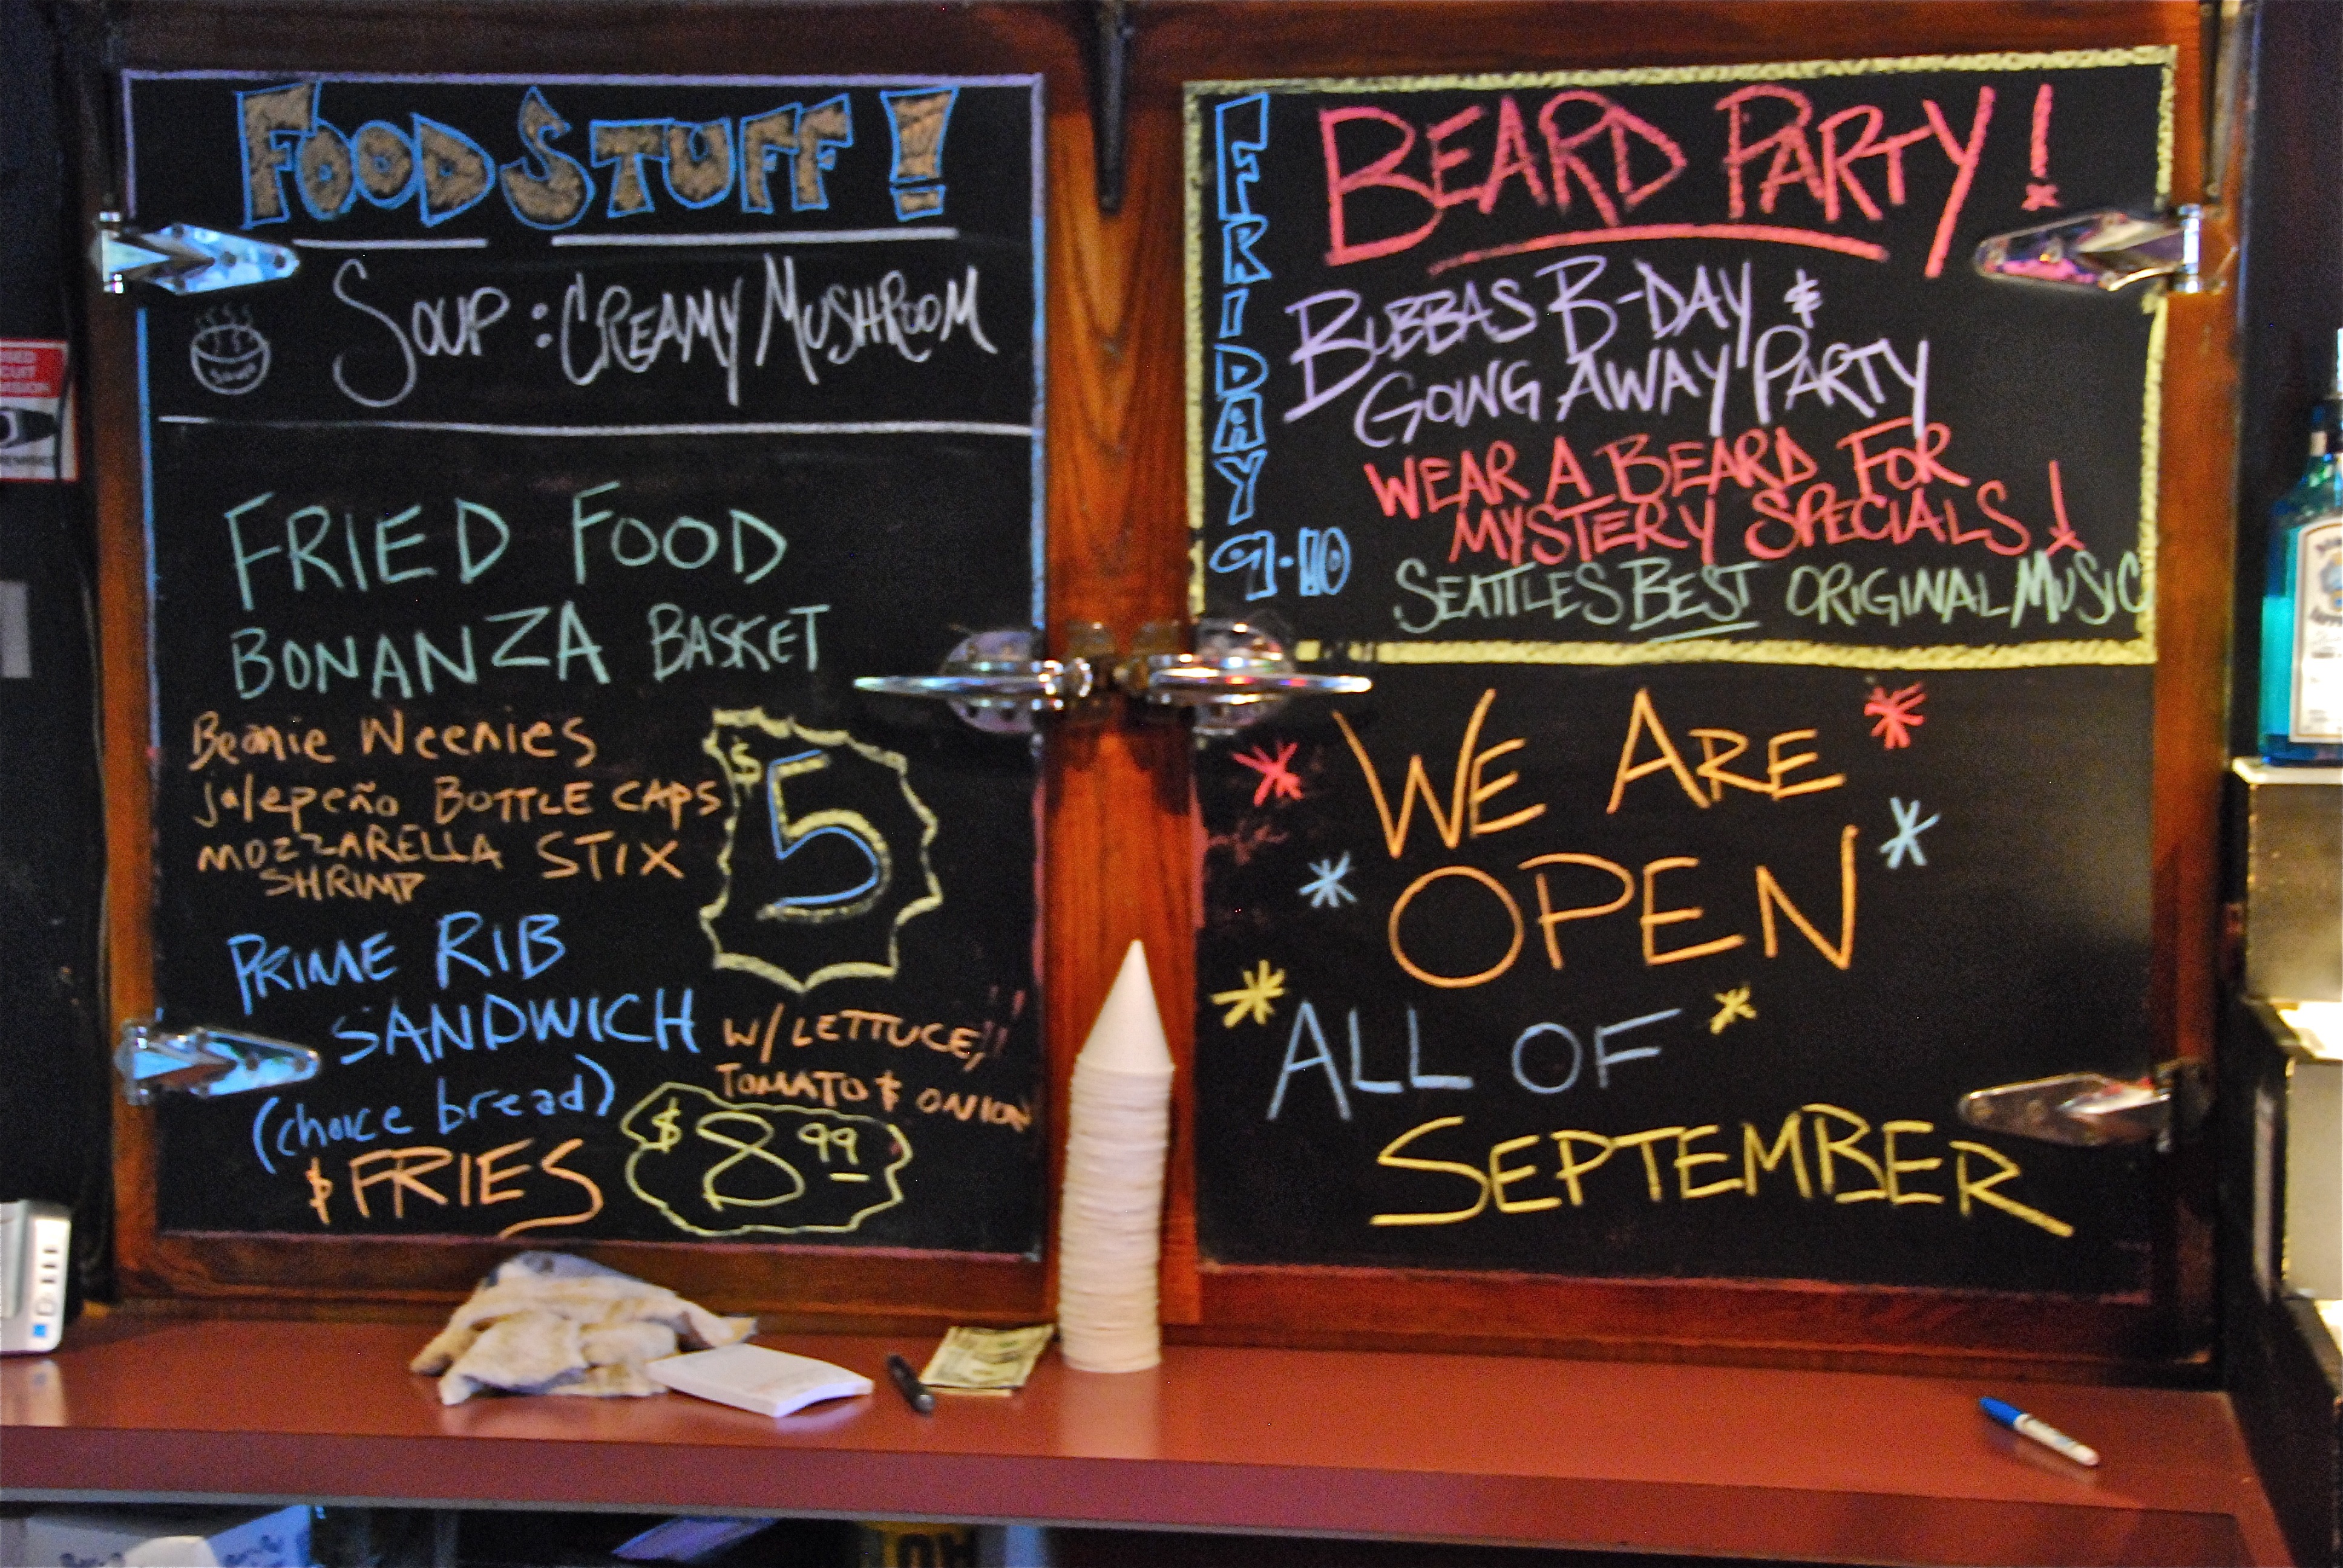 FOOD STUFF!
SOUP: CREAMY MUSHROOM
SOUP
FRIED FOOD
BONANZA BASKET
Beanie Weenies
jalepeño BOTTLE CAPS
MOZZARELLA STIX
SHRIMP
$5
PRIME RIB
SANDWICH
W/LETTUCE,
TOMATO & ONION
(choice bread)
& FRIES
$8 99
FRIDAY
9-10
BEARD PARTY!
BUBBAS B-DAY &
GOING AWAY PARTY
WEAR A BEARD FOR
MYSTERY SPECIALS!
SEATTLES BEST ORIGINAL MUSIC
WE ARE
OPEN
ALL OF
SEPTEMBER